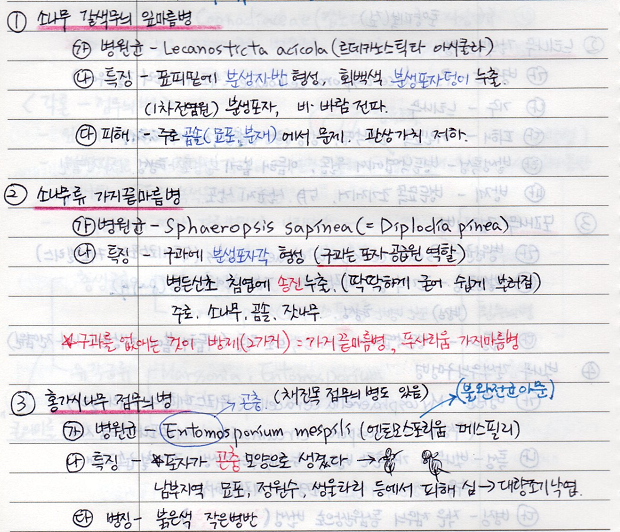 ① 소나무 갈색무늬 잎마름병
㉮ 병원균 - Lecanosticta acicola (르데카노스틱타 아시콜라)
㉯ 특징 - 표피밑에 분생자반 형성, 회백색 분생포자덩이 누출.
(1차전염원) 분생포자, 비·바람 전파.
㉰ 피해. - 주로 곰솔(묘포, 분재)에서 문제. 관상가치 저하.
② 소나무류 가지끝마름병
㉮ 병원균 - Sphaeropsis sapinea (= Diplodia pinea)
㉯ 특징 - 구과에 분생포자각 형성 (구과는 포자 공급원 역할)
병든신초 침엽에 송진누출. (딱딱하게 굳어 쉽게 부러짐)
주로. 소나무, 곰솔, 잣나무
* 구과를 없애는 것이 방제(2가지) = 가지끝마름병, 푸사리움 가지마름병
③ 홍가시나무 점무늬병 → 곤충 (채진목 점무늬병도 있음) (불완전균아문)
㉮ 병원균 Entomosporium mespili (엔토모스포리움 메스필리)
㉯ 특징 * 포자가 곤충 모양으로 생겼다 →
남부지역 묘포, 정원수, 생울타리 등에서 피해 심 → 대량조기낙엽.
㉰ 병징 - 붉은색 작은병반